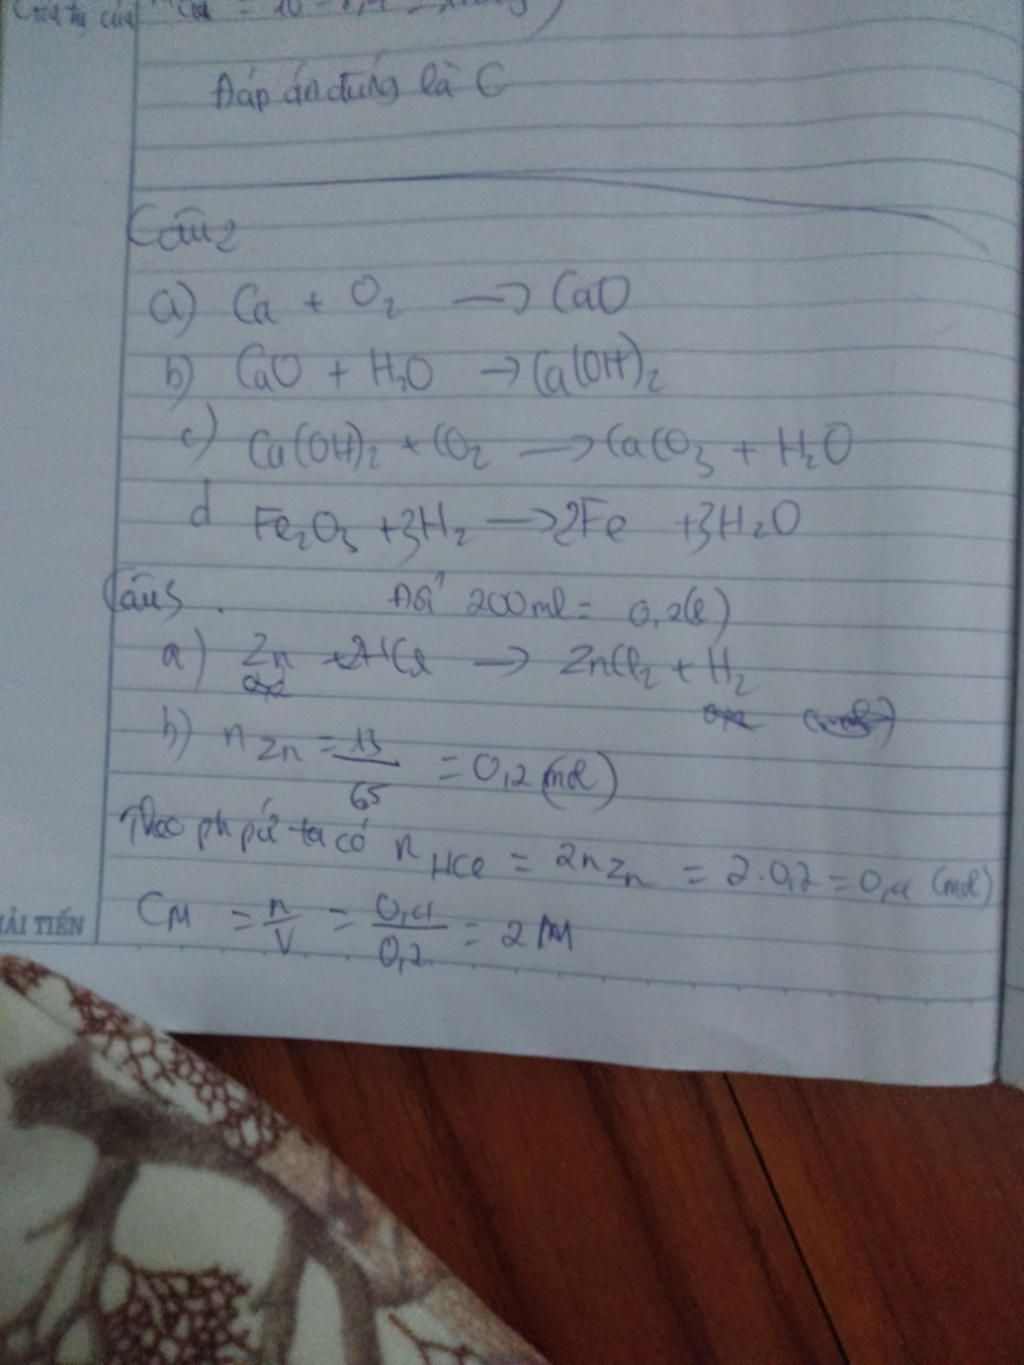 Đáp án đúng là C
Câu 2
a) Ca + O₂ → CaO
b) CaO + H₂O → Ca(OH)₂
c) Ca(OH)₂ + CO₂ → CaCO₃ + H₂O
d Fe₂O₃ + 3H₂ → 2Fe + 3H₂O
Câu 3. Đổi 200ml = 0,2(l)
a) Zn + 2HCl → ZnCl₂ + H₂
b) nZn = 13/65 = 0,2 (mol)
Theo ph pứ ta có nHCl = 2nZn = 2.0,2 = 0,4 (mol)
CM = n/V = 0,4/0,2 = 2M
ẢI TIẾN